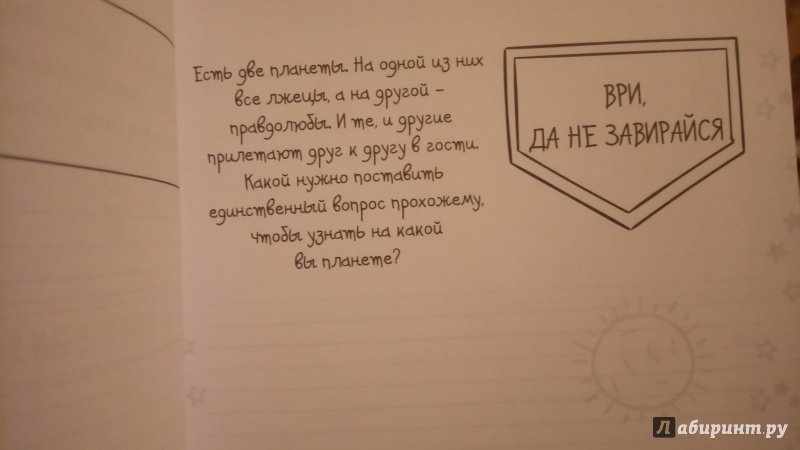 Есть две планеты. На одной из них
все лжецы, а на другой –
правдолюбы. И те, и другие
прилетают друг к другу в гости.
Какой нужно поставить
единственный вопрос прохожему,
чтобы узнать на какой
вы планете?
ВРИ,
ДА НЕ ЗАВИРАЙСЯ
Лабиринт.ру